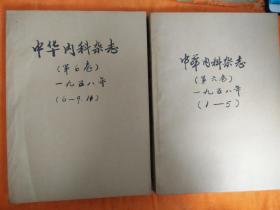 中华内科杂志
(第6卷)
一九五八年
(6-9.11)
中华内科杂志
(第六卷)
一九五八年
(1-5)